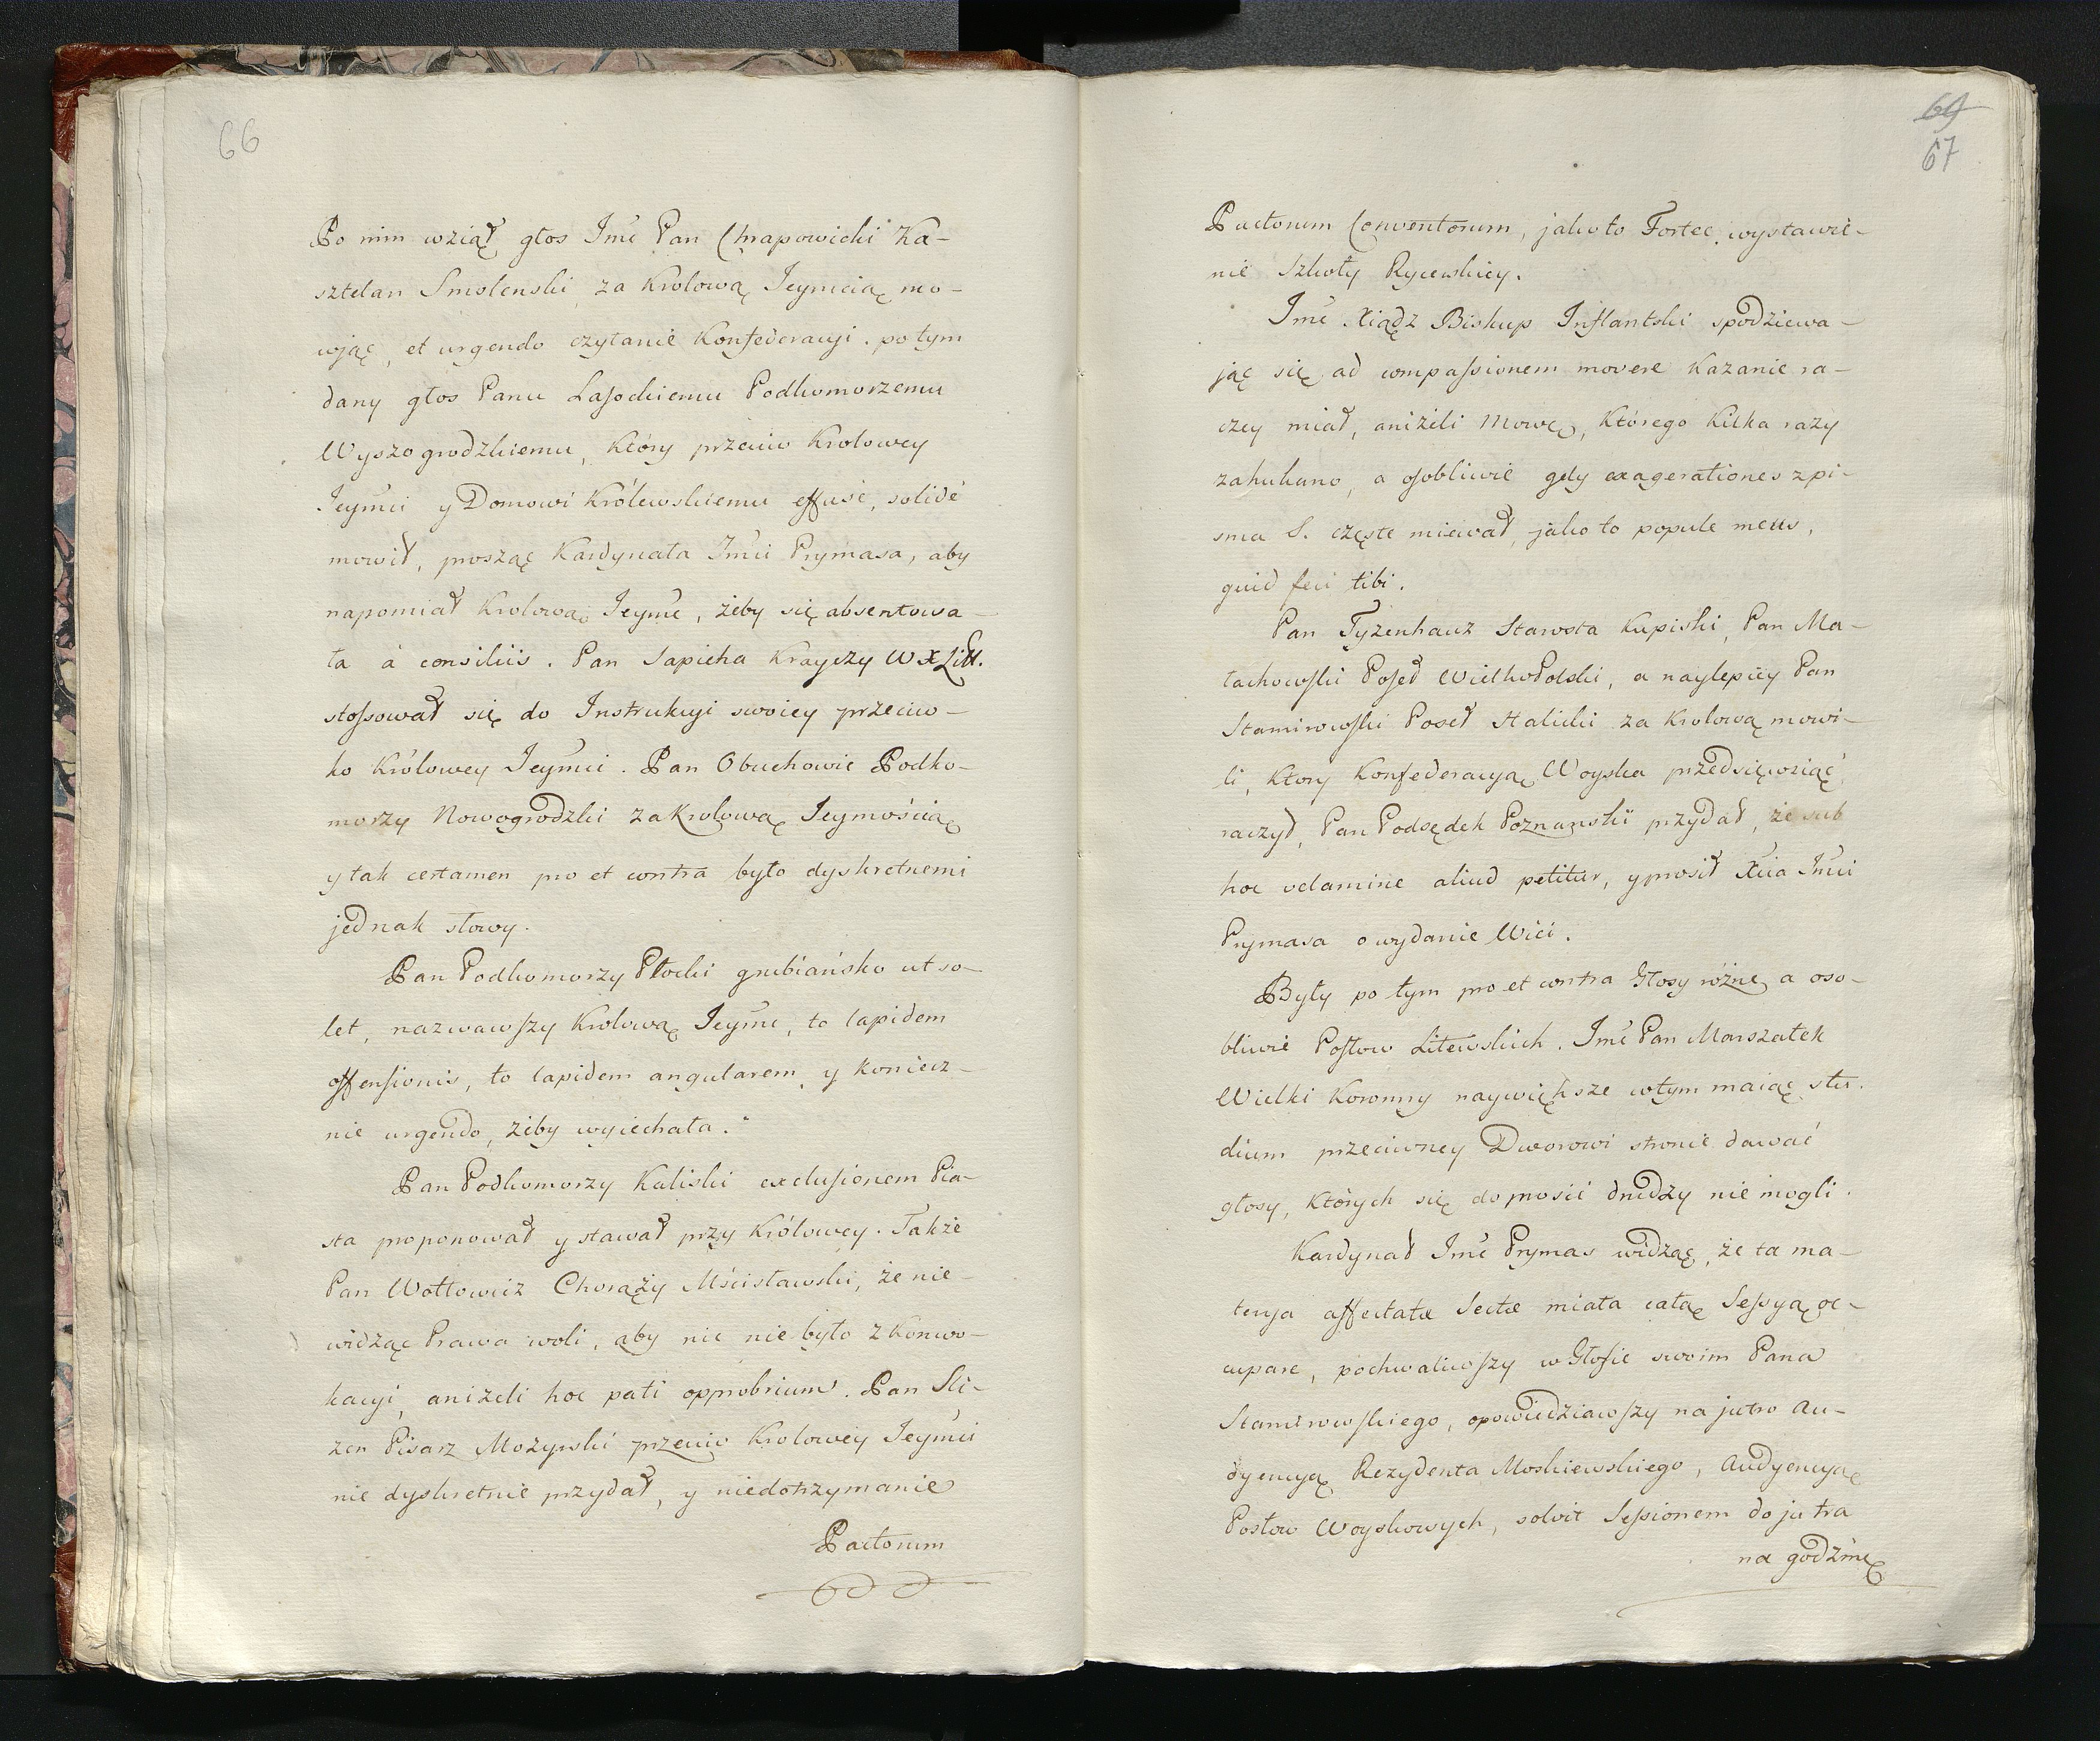 66
Po nim wziął głos Imć Pan Chrapowicki Ka-
sztelan Smolenski za Krolową Ieymcią mo-
wjąc, et urgendo czytanie Konfederacyi. potym
dany głos Panu Lasockiemu Podkomorzemu
Wyszogrodzkiemu, który przeciw Krolowey
Ieymci y Domowi Królewskiemu effuse, solidé
mowił, prosząc Kardynała Imci Prymasa, aby
napomiał Krolową Ieymć, żeby się absentowa-
ła á consiliis. Pan Sapieha Krayczy WXLitt.
stossował się do Instrukcyi swoiey przeciw-
ko Królowey Ieymci. Pan Obuchowic Podko-
morzy Nowogrodzki za Krolową Ieymością
y tak certamen pro et contra było dyskretnemi
jednak słowy.
Pan Podkomorzy Płocki grubiańsko ut so-
let, nazwawszy Krolową Ieymć, to lapidem
offensionis, to lapidem angularem y koniecz-
nie urgendo, żeby wyiechała.
Pan Podkomorzy Kaliski exclusionem Pia-
sta proponował y stawał przy Królowey. Także
Pan Wołłowicz Chorąży Mścisławski, że nie-
widząc Prawa woli, aby nic nie było z Konwo-
kacyi, aniżeli hoc pati opprobrium. Pan Sli-
zen Pisarz Mozyrski przeciw Krolowey Ieymci
nie dyskretnie przydał, y niedotrzymanie
Pactorum
69
67
Pactorum Conventorum, jako to Fortec, wystawie-
nie Szkoły Rycerskiey.
Imć Xiądz Biskup Inflantski spodziewa-
jąc się ad compassionem movere Kazanie ra-
czey miał, aniżeli Mowę, którego kilka razy
zahukano, a osobliwie gdy exagerationes z pi-
sma S. częste miewał, jako to popule meus,
quid feci tibi.
Pan Tyzenhauz Starosta Kupiski, Pan Ma-
łachowski Poseł WielkoPolski, a naylepiey Pan
Stamirowski Poseł Halicki za Krolową mowi-
li, który Konfederacyą Woyska przedsięwziąć
raczył, Pan Podsędek Poznanski przydał, że sub
hoc velamine aliud petitur, y prosił Xcia Imci
Prymasa o wydanie Wici.
Były po tym pro et contra Głosy różne, a oso-
bliwie Posłow Litewskich. Imć Pan Marszałek
Wielki Koronny naywiększe w tym maiąc stu-
dium przeciwney Dworowi stronie dawać
głosy, których się doprosić drudzy nie mogli.
Kardynał Imć Prymas widząc, że ta ma-
terya affectatæ Sectæ miała całą Sessyą oc-
cupare, pochwaliwszy w Głosie swoim Pana
Stamirowskiego, opowiedziawszy na jutro Au-
dyencyą Rezydenta Moskiewskiego, Audyencyą
Posłow Woyskowych, solvit Sessionem do jutra
na godzinę